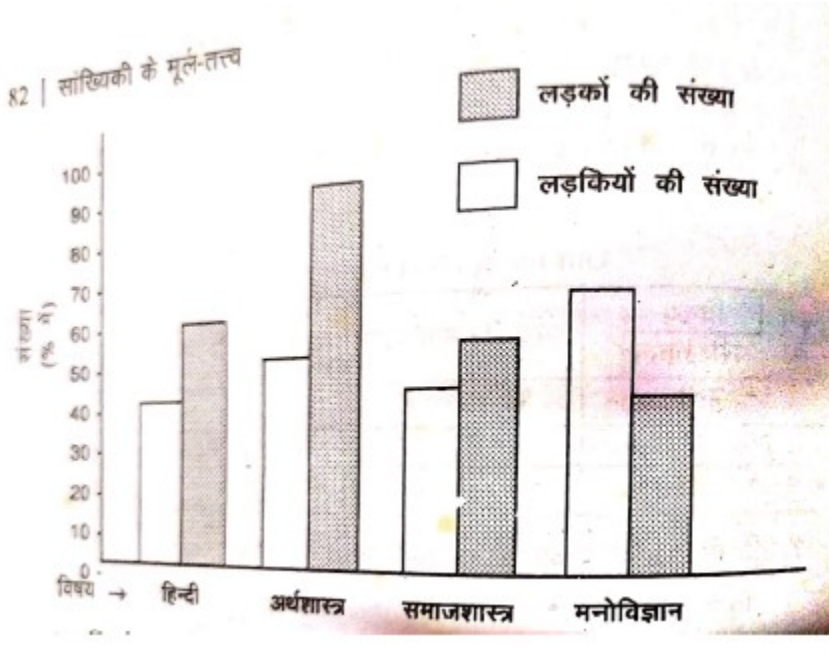 82 | सांख्यिकी के मूल-तत्त्व
लड़कों की संख्या
लड़कियों की संख्या
संख्या
(% में)
100
90
80
70
60
50
40
30
20
10
0
विषय → हिन्दी अर्थशास्त्र समाजशास्त्र मनोविज्ञान